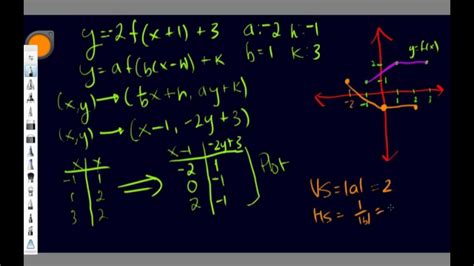 y=-2f(x+1)+3 a:-2 h:-1
b=1 k:3
y=af(b(x-h)+k
(x,y)→(1/b x+h, ay+k)
(x,y)→(x-1, -2y+3)
x y
-1 1
1 2
3 2
x-1 -2y+3
-2 1
0 -1
2 -1
Plot
y=f(x)
2
-2 1 2 3
VS=|a|=2
HS=1/|b|=